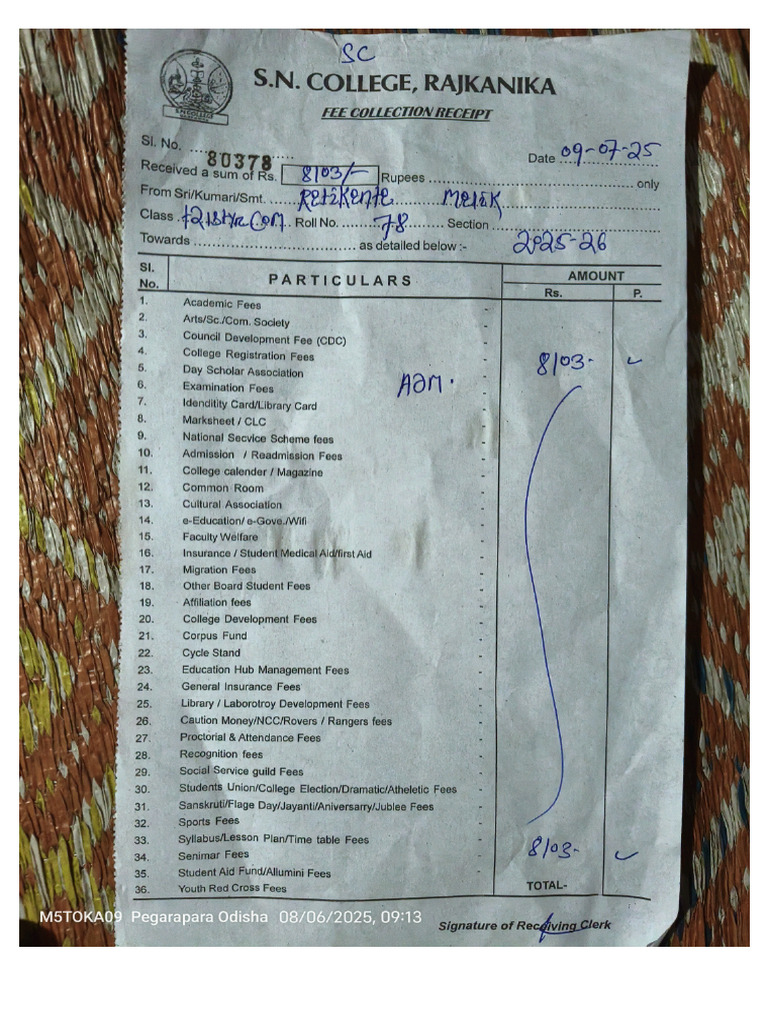 SC
S.N. COLLEGE
S.N. COLLEGE, RAJKANIKA
FEE COLLECTION RECEIPT
Sl. No. 80378 Date 09-07-25
Received a sum of Rs. 8103/- Rupees only
From Sri/Kumari/Smt.
Class Roll No. 78 Section
Towards as detailed below :- 2025-26
Sl. No. PARTICULARS AMOUNT
Rs. P.
1. Academic Fees -
2. Arts/Sc./Com. Society
3. Council Development Fee (CDC)
4. College Registration Fees 8103-
5. Day Scholar Association
6. Examination Fees ADM.
7. Idenditity Card/Library Card
8. Marksheet / CLC
9. National Secvice Scheme fees
10. Admission / Readmission Fees
11. College calender / Magazine
12. Common Room
13. Cultural Association
14. e-Education/ e-Gove./Wifi
15. Faculty Welfare
16. Insurance / Student Medical Aid/first Aid
17. Migration Fees
18. Other Board Student Fees
19. Affiliation fees
20. College Development Fees
21. Corpus Fund
22. Cycle Stand
23. Education Hub Management Fees
24. General Insurance Fees
25. Library / Laborotroy Development Fees
26. Caution Money/NCC/Rovers / Rangers fees
27. Proctorial & Attendance Fees
28. Recognition fees
29. Social Service guild Fees
30. Students Union/College Election/Dramatic/Atheletic Fees
31. Sanskruti/Flage Day/Jayanti/Aniversarry/Jublee Fees
32. Sports Fees
33. Syllabus/Lesson Plan/Time table Fees
34. Senimar Fees 8103-
35. Student Aid Fund/Allumini Fees
36. Youth Red Cross Fees TOTAL-
M5TOKA09 Pegarapara Odisha 08/06/2025, 09:13
Signature of Receiving Clerk